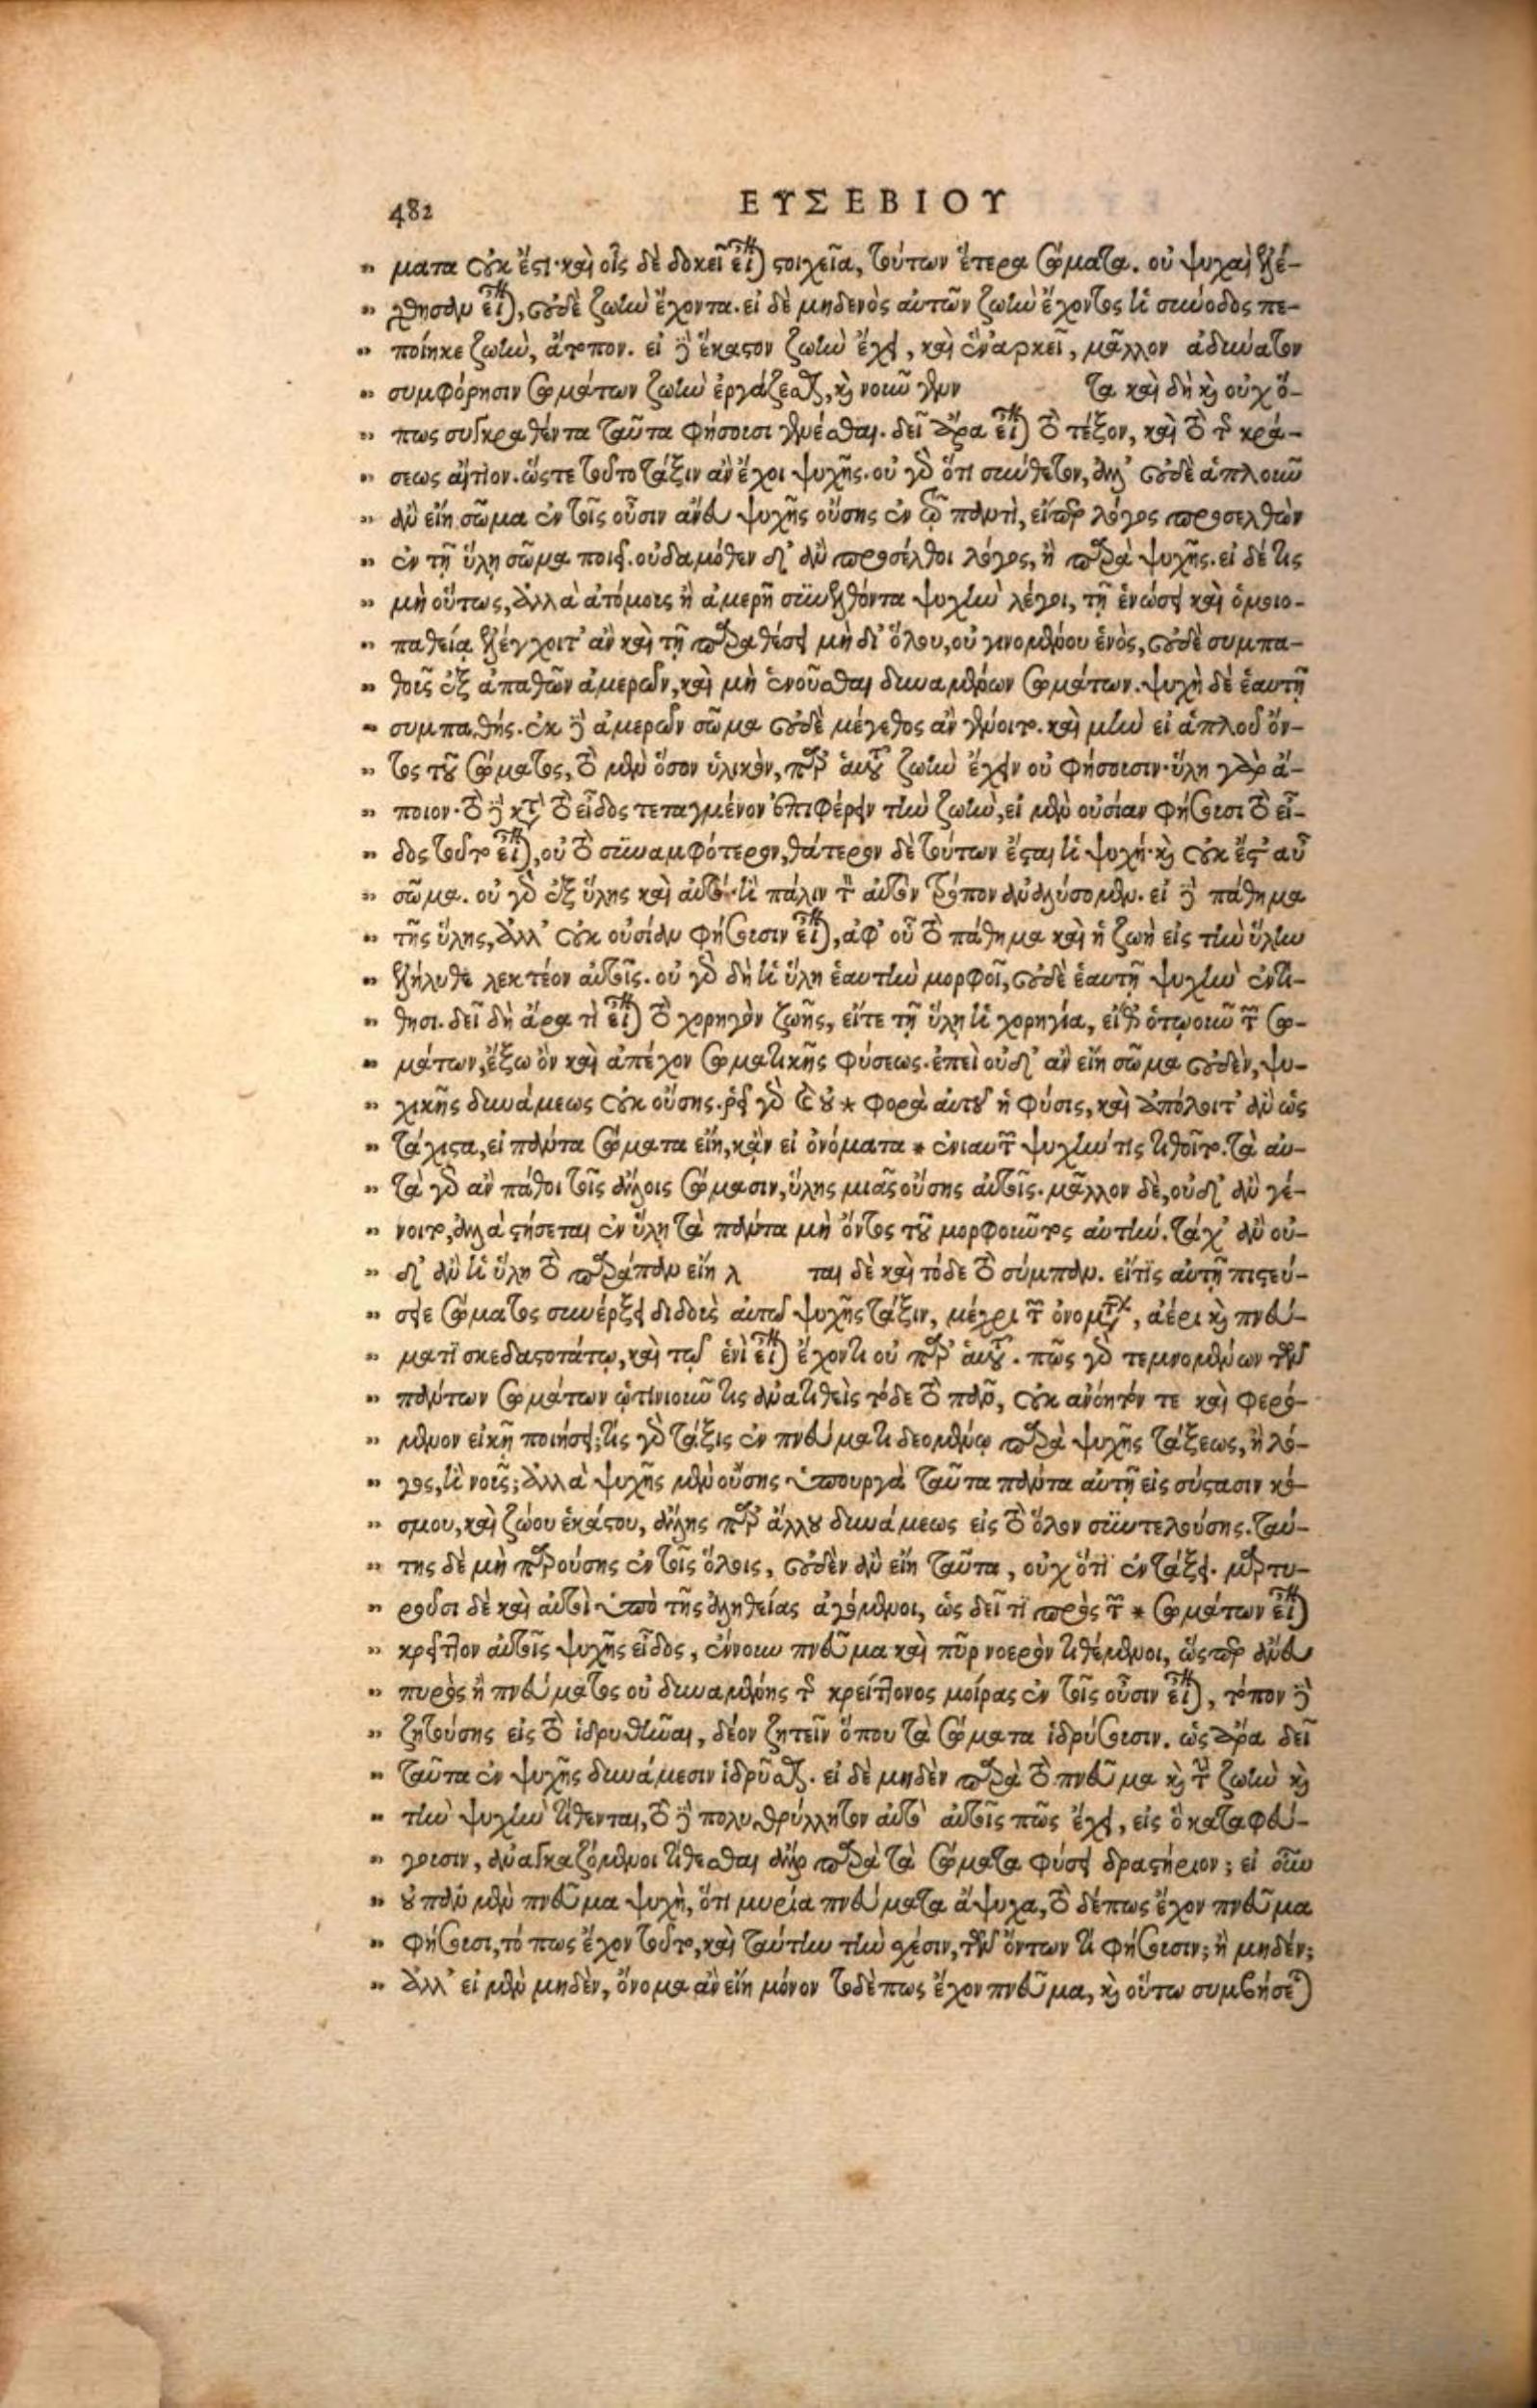 482 ΕΥΣΕΒΙΟΥ
" ματα οὐκ ἔστι· καὶ οἷς δὲ δοκεῖ εἶναι στοιχεῖα, τούτων ἕτερα σώματα. οὐ ψυχαὶ ἐλέ-
" χθησαν εἶναι, οὐδὲ ζωὴν ἔχοντα. εἰ δὲ μηδενὸς αὐτῶν ζωὴν ἔχοντος ἡ σύνοδος πε-
" ποίηκε ζωὴν, ἄτοπον. εἰ δὲ ἕκαστον ζωὴν ἔχει, καὶ ἓν ἀρκεῖ, μᾶλλον ἀδύνατον
" συμφόρησιν σωμάτων ζωὴν ἐργάζεσθαι, καὶ νοῦν γεν τα καὶ δὴ καὶ οὐχ ὅ-
" πως συγκραθέντα ταῦτα φήσουσι γενέσθαι. δεῖ ἄρα εἶναι τὸ τέξον, καὶ τὸ τῆς κρά-
" σεως αἴτιον. ὥστε τοῦτο τάξιν ἂν ἔχοι ψυχῆς. οὐ γὰρ ὅτι σύνθετον, ἀλλ' οὐδὲ ἁπλοῦν
" ἂν εἴη σῶμα ἐν τοῖς οὖσιν ἄνευ ψυχῆς οὔσης ἐν τῷ παντὶ, εἴπερ λόγος προσελθὼν
" ἐν τῇ ὕλῃ σῶμα ποιεῖ. οὐδαμόθεν δ' ἂν προσέλθοι λόγος, ἢ παρὰ ψυχῆς. εἰ δέ τις
" μὴ οὕτως, ἀλλὰ ἀτόμους ἢ ἀμερῆ συνελθόντα ψυχὴν λέγοι, τῇ ἑνώσει καὶ ὁμοιο-
" παθείᾳ ἐλέγχοιτ' ἂν καὶ τῇ παραθέσει μὴ δι' ὅλου, οὐ γινομένου ἑνὸς, οὐδὲ συμπα-
" θοῦς ἐξ ἀπαθῶν ἀμερῶν, καὶ μὴ ἑνοῦσθαι δυναμένων σωμάτων. ψυχὴ δὲ ἑαυτῇ
" συμπαθής. ἐκ δὲ ἀμερῶν σῶμα οὐδὲ μέγεθος ἂν γένοιτο. καὶ μὴν εἰ ἁπλοῦ ὄν-
" τος τοῦ σώματος, τὸ μὲν ὅσον ὑλικὸν, παρ' αὑτοῦ ζωὴν ἔχειν οὐ φήσουσιν· ὕλη γὰρ ἄ-
" ποιον· τὸ δὲ κατὰ τὸ εἶδος τεταγμένον ἐπιφέρειν τὴν ζωὴν, εἰ μὲν οὐσίαν φήσουσι τὸ εἶ-
" δος τοῦτο εἶναι, οὐ τὸ συναμφότερον, θάτερον δὲ τούτων ἔσται ἡ ψυχή· καὶ οὐκ ἔστ' αὖ
" σῶμα. οὐ γὰρ ἐξ ὕλης καὶ αὐτό· ἢ πάλιν τὸν αὐτὸν τρόπον ἀναλύσομεν. εἰ δὲ πάθημα
" τῆς ὕλης, ἀλλ' οὐκ οὐσίαν φήσουσιν εἶναι, ἀφ' οὗ τὸ πάθημα καὶ ἡ ζωὴ εἰς τὴν ὕλην
" ἐλήλυθε λεκτέον αὐτοῖς. οὐ γὰρ δὴ ἡ ὕλη ἑαυτὴν μορφοῖ, οὐδὲ ἑαυτῇ ψυχὴν ἐντί-
" θησι. δεῖ δὴ ἄρα τὶ εἶναι τὸ χορηγὸν ζωῆς, εἴτε τῇ ὕλῃ ἡ χορηγία, εἴθ' ὁτῳοῦν τῶν σω-
" μάτων, ἔξω ὂν καὶ ἀπέχον σωματικῆς φύσεως. ἐπεὶ οὐδ' ἂν εἴη σῶμα οὐδὲν, ψυ-
" χικῆς δυνάμεως οὐκ οὔσης. ῥεῖ γὰρ * φορὰ αὐτοῦ ἡ φύσις, καὶ ἀπόλοιτ' ἂν ὡς
" τάχιστα, εἰ πάντα σώματα εἴη, κἂν εἰ ὀνόματα * ψυχήν τις τιθοῖτο. τὰ αὐ-
" τὰ γὰρ ἂν πάθοι τοῖς ἄλλοις σώμασιν, ὕλης μιᾶς οὔσης αὐτοῖς. μᾶλλον δὲ, οὐδ' ἂν γέ-
" νοιτο, ἀλλὰ στήσεται ἐν ὕλῃ τὰ πάντα μὴ ὄντος τοῦ μορφοῦντος αὐτήν. τάχ' ἂν οὐ-
" δ' ἂν ἡ ὕλη τὸ παράπαν εἴη λ ται δὲ καὶ τόδε τὸ σύμπαν. εἴ τις αὐτῇ πιστεύ-
" σειε σώματος συνέρξει διδοὺς αὐτῷ ψυχῆς τάξιν, μέχρι τῶν ὀνομάτων, ἀέρι καὶ πνεύ-
" ματι σκεδαστοτάτῳ, καὶ τῷ ἑνὶ εἶναι ἔχοντι οὐ παρ' αὑτοῦ. πῶς γὰρ τεμνομένων τῶν
" πάντων σωμάτων ᾡτινιοῦν τις ἀνατιθεὶς τόδε τὸ πᾶν, οὐκ ἀνόητόν τε καὶ φερό-
" μενον εἰκῆ ποιήσει; τίς γὰρ τάξις ἐν πνεύματι δεομένῳ παρὰ ψυχῆς τάξεως, ἢ λό-
" γος, ἢ νοῦς; ἀλλὰ ψυχῆς μὲν οὔσης ὑπουργὰ ταῦτα πάντα αὐτῇ εἰς σύστασιν κό-
" σμου, καὶ ζώου ἑκάστου, ἄλλης παρ' ἄλλου δυνάμεως εἰς τὸ ὅλον συντελούσης. ταύ-
" της δὲ μὴ παρούσης ἐν τοῖς ὅλοις, οὐδὲν ἂν εἴη ταῦτα, οὐχ ὅτι ἐν τάξει. μαρτυ-
" ροῦσι δὲ καὶ αὐτοὶ ὑπὸ τῆς ἀληθείας ἀγόμενοι, ὡς δεῖ τι πρὸς τῶν * σωμάτων εἶναι
" κρεῖττον αὐτοῖς ψυχῆς εἶδος, ἔννουν πνεῦμα καὶ πῦρ νοερὸν τιθέμενοι, ὥσπερ ἄνευ
" πυρὸς ἢ πνεύματος οὐ δυναμένης τῆς κρείττονος μοίρας ἐν τοῖς οὖσιν εἶναι, τόπον δὲ
" ζητούσης εἰς τὸ ἱδρυθῆναι, δέον ζητεῖν ὅπου τὰ σώματα ἱδρύσουσιν. ὡς ἄρα δεῖ
" ταῦτα ἐν ψυχῆς δυνάμεσιν ἱδρῦσθαι. εἰ δὲ μηδὲν παρὰ τὸ πνεῦμα καὶ τὴν ζωὴν καὶ
" τὴν ψυχὴν τίθενται, τὸ δὲ πολυθρύλλητον αὐτὸ αὐτοῖς πῶς ἔχει, εἰς ὃ καταφεύ-
" γουσιν, ἀναγκαζόμενοι τίθεσθαι ἄλλο παρὰ τὰ σώματα φύσει δραστήριον; εἰ οὖν
" οὐ πᾶν μὲν πνεῦμα ψυχὴ, ὅτι μυρία πνεύματα ἄψυχα, τὸ δέ πως ἔχον πνεῦμα
" φήσουσι, τό πως ἔχον τοῦτο, καὶ ταύτην τὴν σχέσιν, τῶν ὄντων τι φήσουσιν; ἢ μηδέν;
" ἀλλ' εἰ μὲν μηδὲν, ὄνομα ἂν εἴη μόνον τὸ δέ πως ἔχον πνεῦμα, καὶ οὕτω συμβήσεται